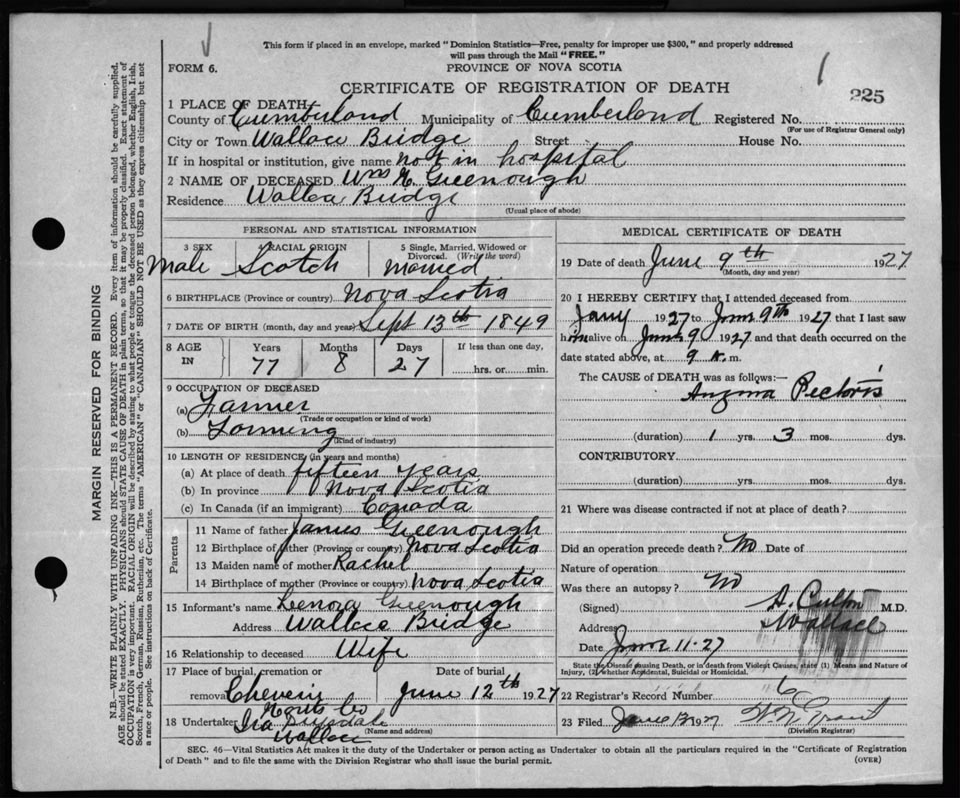 This form if placed in an envelope, marked "Dominion Statistics—Free, penalty for improper use $300," and properly addressed
will pass through the Mail "FREE."
FORM 6.
PROVINCE OF NOVA SCOTIA
CERTIFICATE OF REGISTRATION OF DEATH
225
1 PLACE OF DEATH
County of Cumberland Municipality of Cumberland Registered No.
(For use of Registrar General only)
City or Town Wallace Bridge Street House No.
If in hospital or institution, give name not in hospital
2 NAME OF DECEASED Wm H. Greenough
Residence Wallace Bridge
(Usual place of abode)
MARGIN RESERVED FOR BINDING
N.B.—WRITE PLAINLY WITH UNFADING INK—THIS IS A PERMANENT RECORD. Every item of information should be carefully supplied.
AGE should be stated EXACTLY. PHYSICIANS should STATE CAUSE OF DEATH in plain terms, so that it may be properly classified. Exact statement of
OCCUPATION is very important. RACIAL ORIGIN will be described by stating to what people or tongue the deceased person belonged, whether English, Irish,
Scotch, French, German, Russian, Ruthenian, etc. The terms "AMERICAN" or "CANADIAN" SHOULD NOT BE USED as they express citizenship but not
a race or people. See instructions on back of Certificate.
PERSONAL AND STATISTICAL INFORMATION
3 SEX
Male
4 RACIAL ORIGIN
Scotch
5 Single, Married, Widowed or
Divorced. (Write the word)
Married
6 BIRTHPLACE (Province or country) Nova Scotia
7 DATE OF BIRTH (month, day and year) Sept 13th 1849
8 AGE
IN
Years
77
Months
8
Days
27
If less than one day,
hrs. or min.
9 OCCUPATION OF DECEASED
(a) Farmer
(Trade or occupation or kind of work)
(b) Farming
(Kind of industry)
10 LENGTH OF RESIDENCE (in years and months)
(a) At place of death fifteen years
(b) In province Nova Scotia
(c) In Canada (if an immigrant) Canada
Parents
11 Name of father James Greenough
12 Birthplace of father (Province or country) Nova Scotia
13 Maiden name of mother Rachel
14 Birthplace of mother (Province or country) Nova Scotia
15 Informant's name Lenora Greenough
Address Wallace Bridge
16 Relationship to deceased Wife
17 Place of burial, cremation or
removal
Date of burial
June 12th 1927
18 Undertaker Ira
Wallace
(Name and address)
MEDICAL CERTIFICATE OF DEATH
19 Date of death June 9th 1927
(Month, day and year)
20 I HEREBY CERTIFY that I attended deceased from
Jany 1927 to June 9th 1927 that I last saw
him alive on June 9 1927 and that death occurred on the
date stated above, at 9 a.m.
The CAUSE of DEATH was as follows:—
Angina Pectoris
(duration) 1 yrs. 3 mos. dys.
CONTRIBUTORY.
(duration) yrs. mos. dys.
21 Where was disease contracted if not at place of death?
Did an operation precede death? No Date of
Nature of operation
Was there an autopsy? No
(Signed) M.D.
Address Wallace
Date June 11-27
State the Disease causing Death, or in death from Violent Causes, state (1) Means and Nature of
Injury, (2) whether Accidental, Suicidal or Homicidal.
22 Registrar's Record Number 6
23 Filed June 1927
(Division Registrar)
SEC. 46—Vital Statistics Act makes it the duty of the Undertaker or person acting as Undertaker to obtain all the particulars required in the "Certificate of Registration
of Death" and to file the same with the Division Registrar who shall issue the burial permit.
(OVER)